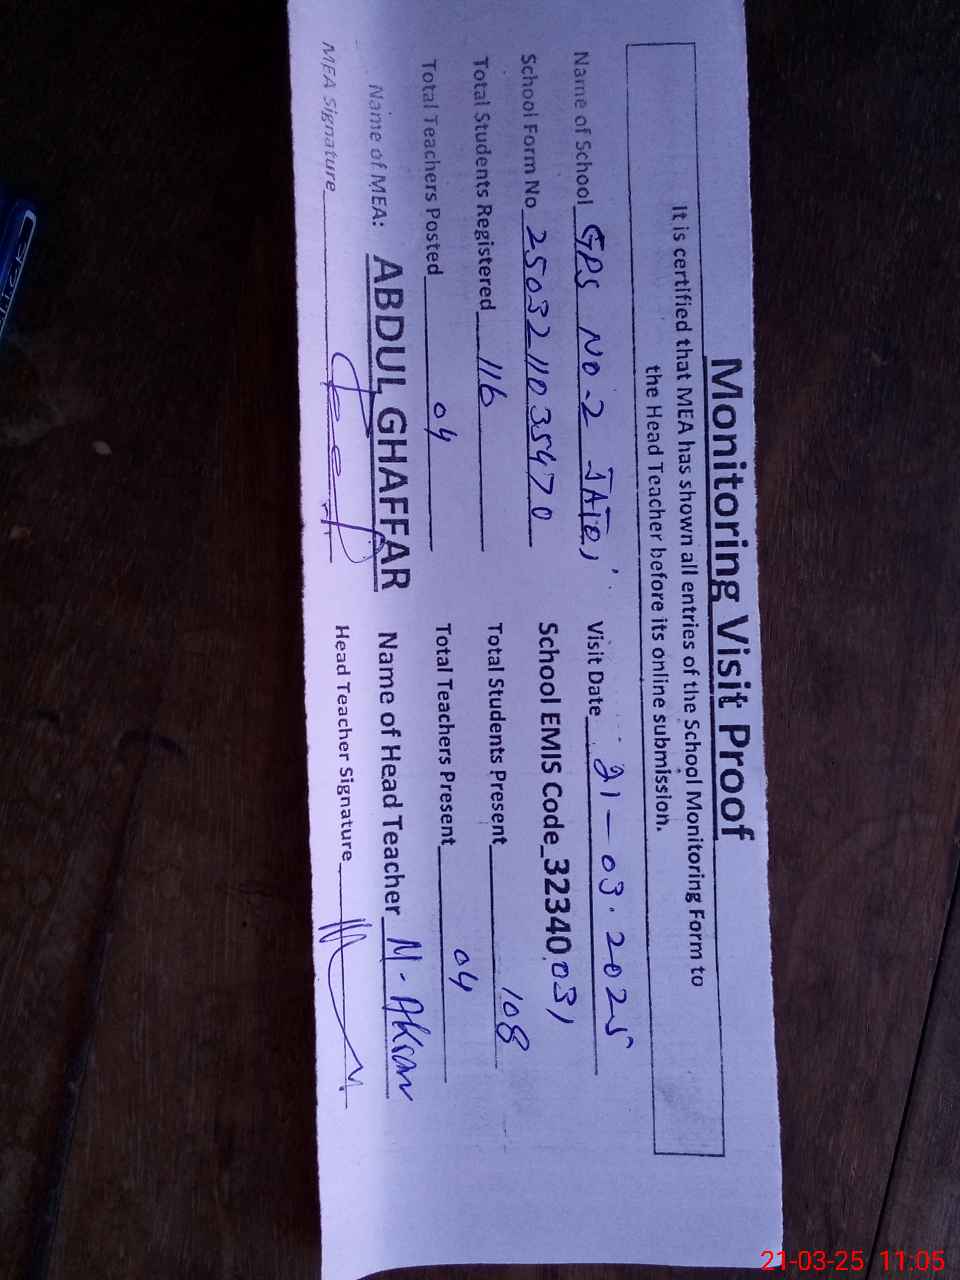 Monitoring Visit Proof
It is certified that MEA has shown all entries of the School Monitoring Form to
the Head Teacher before its online submission.
Name of School GPS No-2 JAToi Visit Date 21-03.2025
School Form No 2503211035470 School EMIS Code_32340031
Total Students Registered 116 Total Students Present 108
Total Teachers Posted 04 Total Teachers Present 04
Name of MEA: ABDUL GHAFFAR Name of Head Teacher M-Akram
MEA Signature Head Teacher Signature
21-03-25 11:05